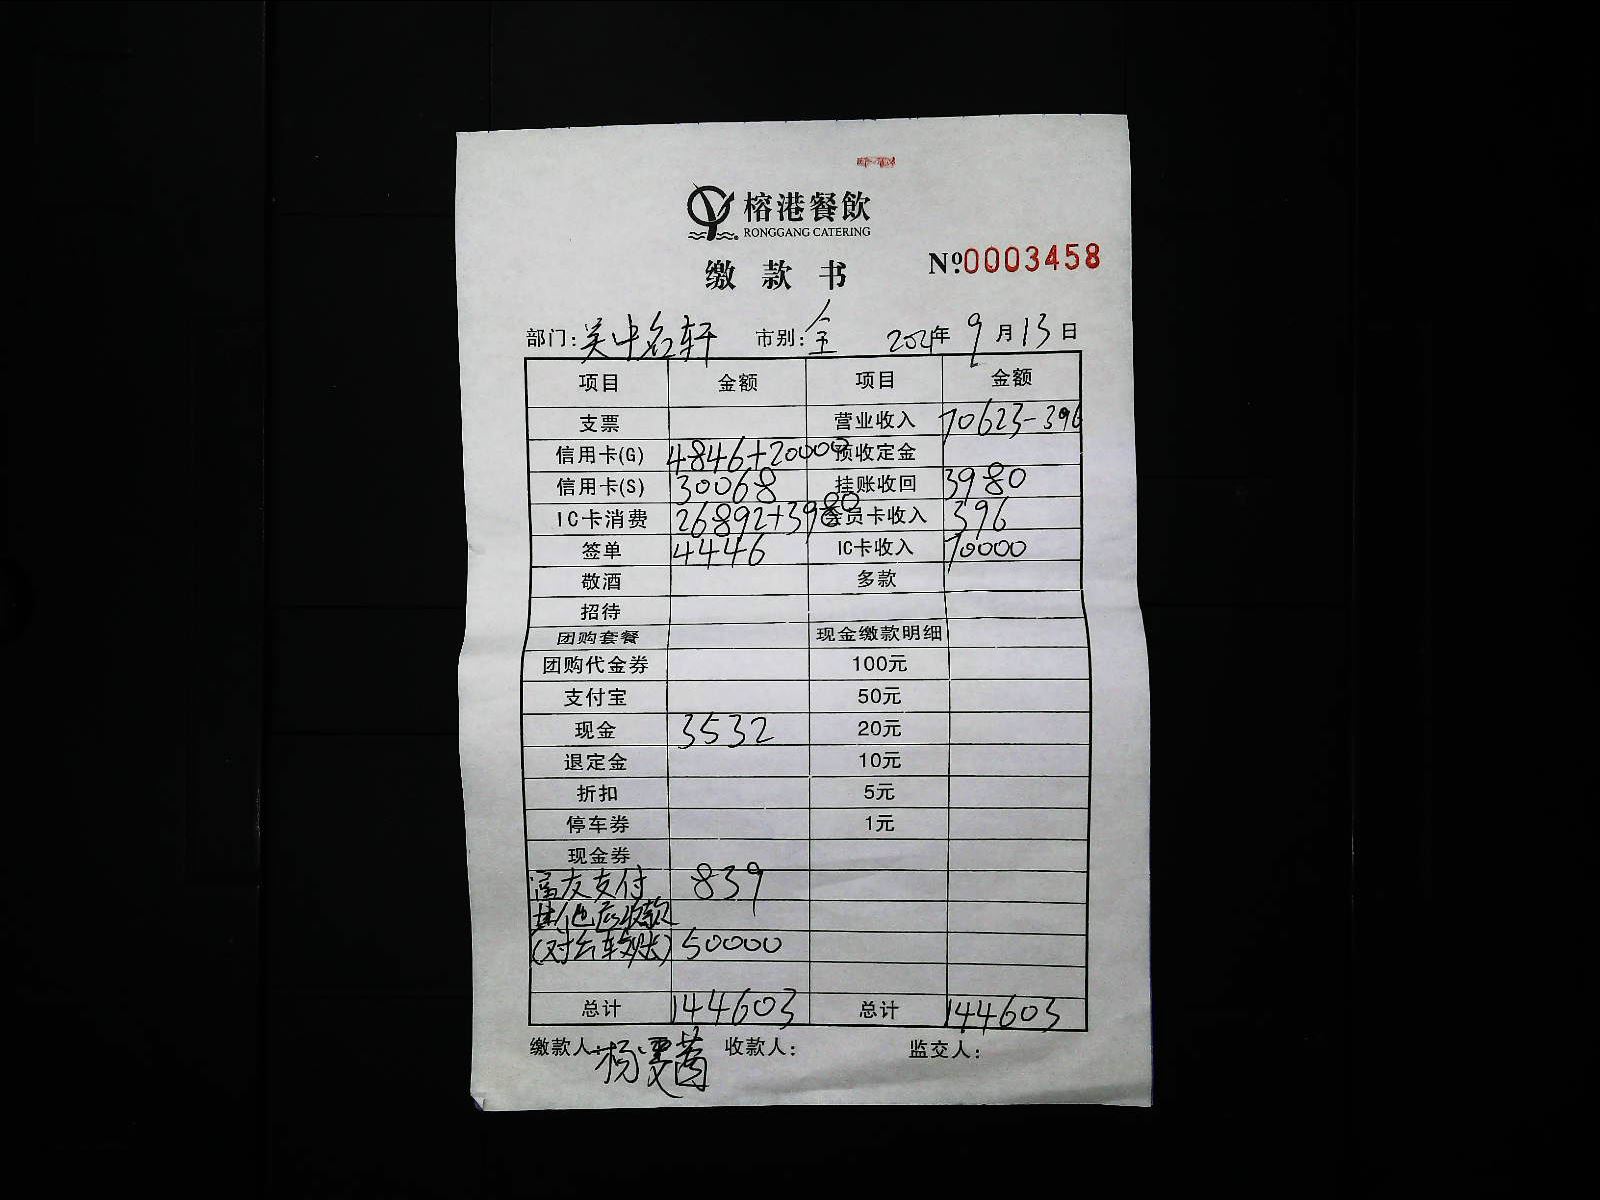 榕港餐飲
RONGGANG CATERING
缴款书
№0003458
部门：吴中名轩 市别：全 2021年9月13日
项目 金额 项目 金额
支票 营业收入 70623-396
信用卡(G) 4846+20000 预收定金
信用卡(S) 30068 挂账收回 3980
IC卡消费 26892+3980 会员卡收入 396
签单 4446 IC卡收入 70000
敬酒 多款
招待
团购套餐 现金缴款明细
团购代金券 100元
支付宝 50元
现金 3532 20元
退定金 10元
折扣 5元
停车券 1元
现金券
富友支付 839
其他应收款
(对公转账) 50000
总计 144603 总计 144603
缴款人：杨雯茵 收款人： 监交人：